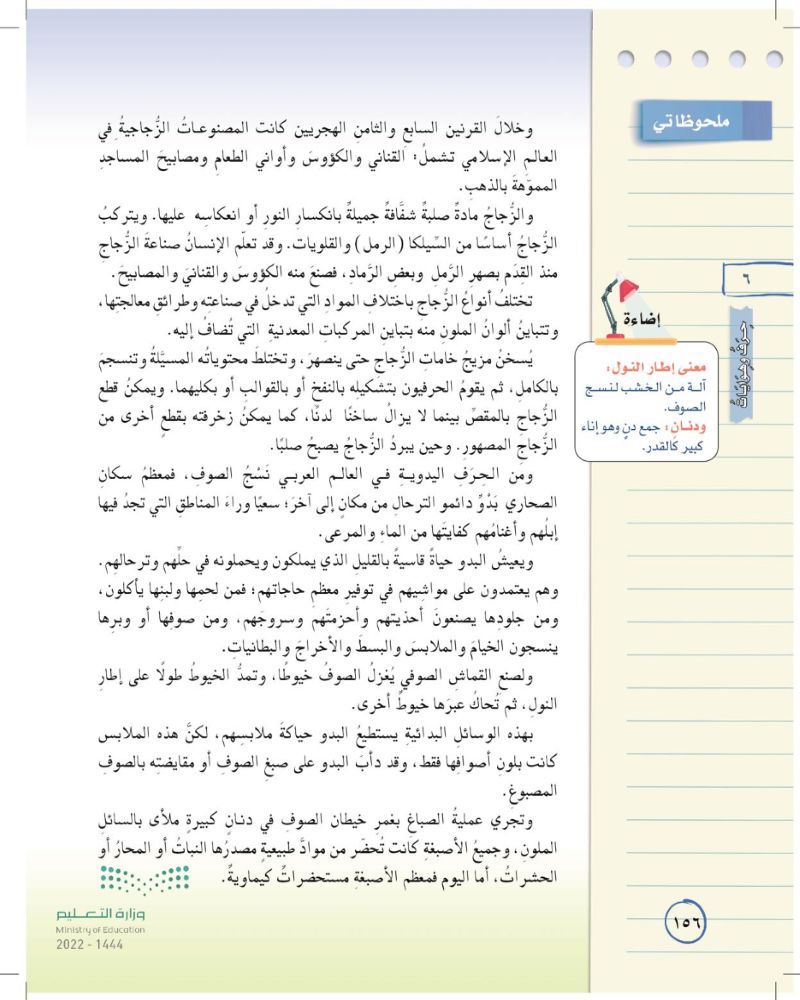 ملحوظاتي
٦
حِرَفٌ وهِوَاياتٌ
وخلالَ القرنين السابعِ والثامنِ الهجريين كانت المصنوعاتُ الزُّجاجيةُ في
العالم الإسلامي تشملُ: القناني والكؤوسَ وأواني الطعامِ ومصابيحَ المساجدِ
المموّهةَ بالذهبِ.
والزُّجاجُ مادةٌ صلبةٌ شفَّافةٌ جميلةٌ بانكسارِ النورِ أو انعكاسِه عليها. ويتركبُ
الزُّجاجُ أساسًا من السِّيلكا (الرمل) والقلويات. وقد تعلّم الإنسانُ صناعةَ الزُّجاج
منذ القِدَم بصهرِ الرَّملِ وبعضِ الرَّمادِ، فصنعَ منه الكؤوسَ والقنانيَ والمصابيحَ.
تختلفُ أنواعُ الزُّجاجِ باختلافِ الموادِ التي تدخلُ في صناعته وطرائقِ معالجتها،
وتتباينُ ألوانُ الملونِ منه بتباينِ المركباتِ المعدنيةِ التي تُضافُ إليه.
يُسخنُ مزيجُ خاماتِ الزُّجاجِ حتى ينصهرَ، وتختلطَ محتوياتُه المسيَّلةُ وتنسجمَ
بالكاملِ، ثم يقومُ الحرفيون بتشكيلِه بالنفخِ أو بالقوالبِ أو بكليهما. ويمكنُ قطع
الزُّجاجِ بالمقصِّ بينما لا يزالُ ساخنًا لدنًا، كما يمكنُ زخرفته بقطعٍ أخرى من
الزُّجاجِ المصهورِ. وحين يبردُ الزُّجاجُ يصبحُ صلبًا.
ومن الحِرَفِ اليدويةِ في العالمِ العربي نَسْجُ الصوفِ، فمعظمُ سكانِ
الصحاري بَدْوٌ دائمو الترحالِ من مكانٍ إلى آخرَ؛ سعيًا وراءَ المناطقِ التي تجدُ فيها
إبلُهم وأغنامُهم كفايتَها من الماءِ والمرعى.
ويعيشُ البدو حياةً قاسيةً بالقليلِ الذي يملكون ويحملونه في حلِّهم وترحالهِم.
وهم يعتمدون على مواشيهم في توفيرِ معظمِ حاجاتهم؛ فمن لحمِها ولبنِها يأكلون،
ومن جلودِها يصنعونَ أحذيتهم وأحزمتَهم وسروجَهم، ومن صوفِها أو وبرِها
ينسجون الخيامَ والملابسَ والبسطَ والأخراجَ والبطانياتِ.
ولصنعِ القماشِ الصوفي يُغزلُ الصوفُ خيوطًا، وتمدُّ الخيوطُ طولًا على إطارِ
النولِ، ثم تُحاكُ عبرَها خيوطٌ أخرى.
بهذه الوسائلِ البدائيةِ يستطيعُ البدو حياكةَ ملابسِهم، لكنَّ هذه الملابس
كانت بلونِ أصوافِها فقط، وقد دأبَ البدو على صبغِ الصوفِ أو مقايضتِه بالصوفِ
المصبوغِ.
وتجري عمليةُ الصباغِ بغمرِ خيطانِ الصوفِ في دنانٍ كبيرةٍ ملأى بالسائلِ
الملونِ، وجميعُ الأصبغةِ كانت تُحضّر من موادَّ طبيعيةٍ مصدرُها النباتُ أو المحارُ أو
الحشراتُ، أما اليوم فمعظم الأصبغةِ مستحضراتٌ كيماويةٌ.
إضاءة
معنى إطار النول:
آلة من الخشب لنسج
الصوف.
ودنان: جمع دنٍ وهو إناء
كبير كالقدر.
١٥٦
وزارة التعليم
Ministry of Education
2022 - 1444